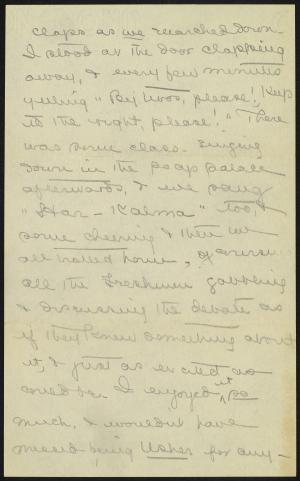 claps as we marched down.
I stood at the door clapping
away, & every few minutes
yelling "By twos, please! Keep
to the right, please!" There
was some class singing
down in the soap palace
afterwards, & we sang
"Har - Kalma" too, &
some cheering & then we
all trailed home,
all the Freshmen gabbling
& discussing the debate as
if they knew something about
it, & just as excited as
could be. I enjoyed it so
much, & wouldn't have
missed being Usher for any-